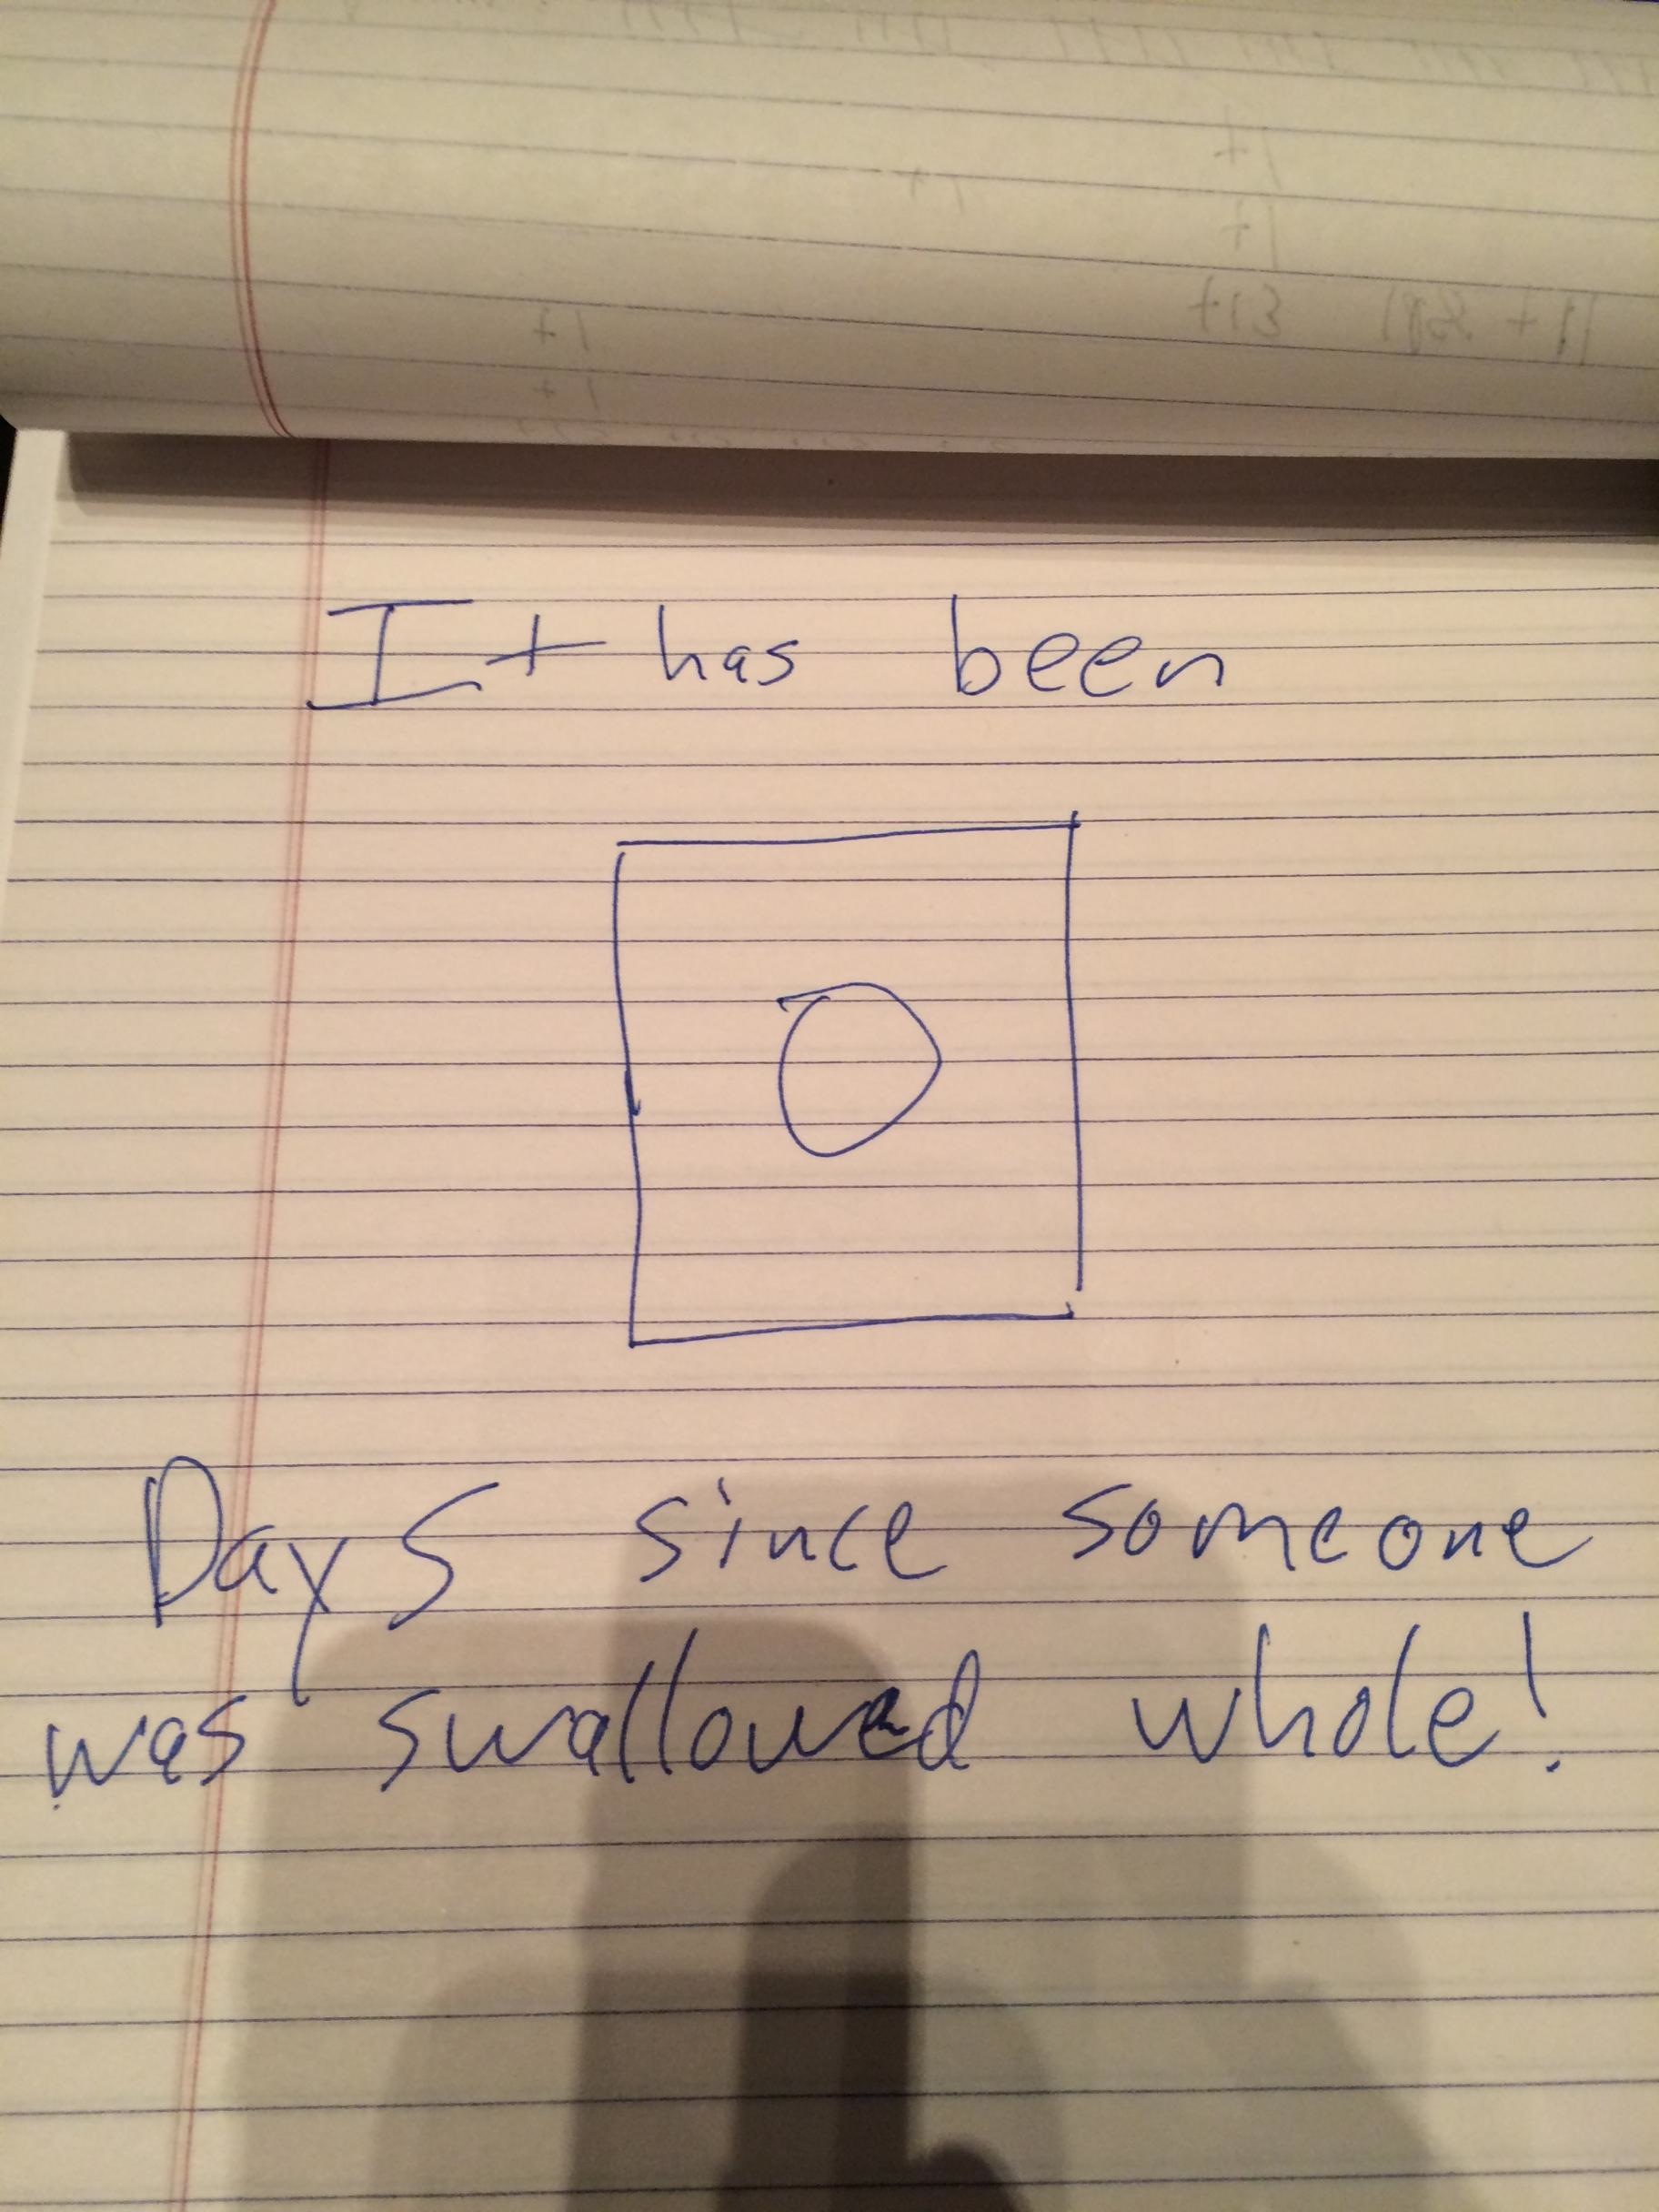 It has been
0
Days since someone
was swallowed whole!